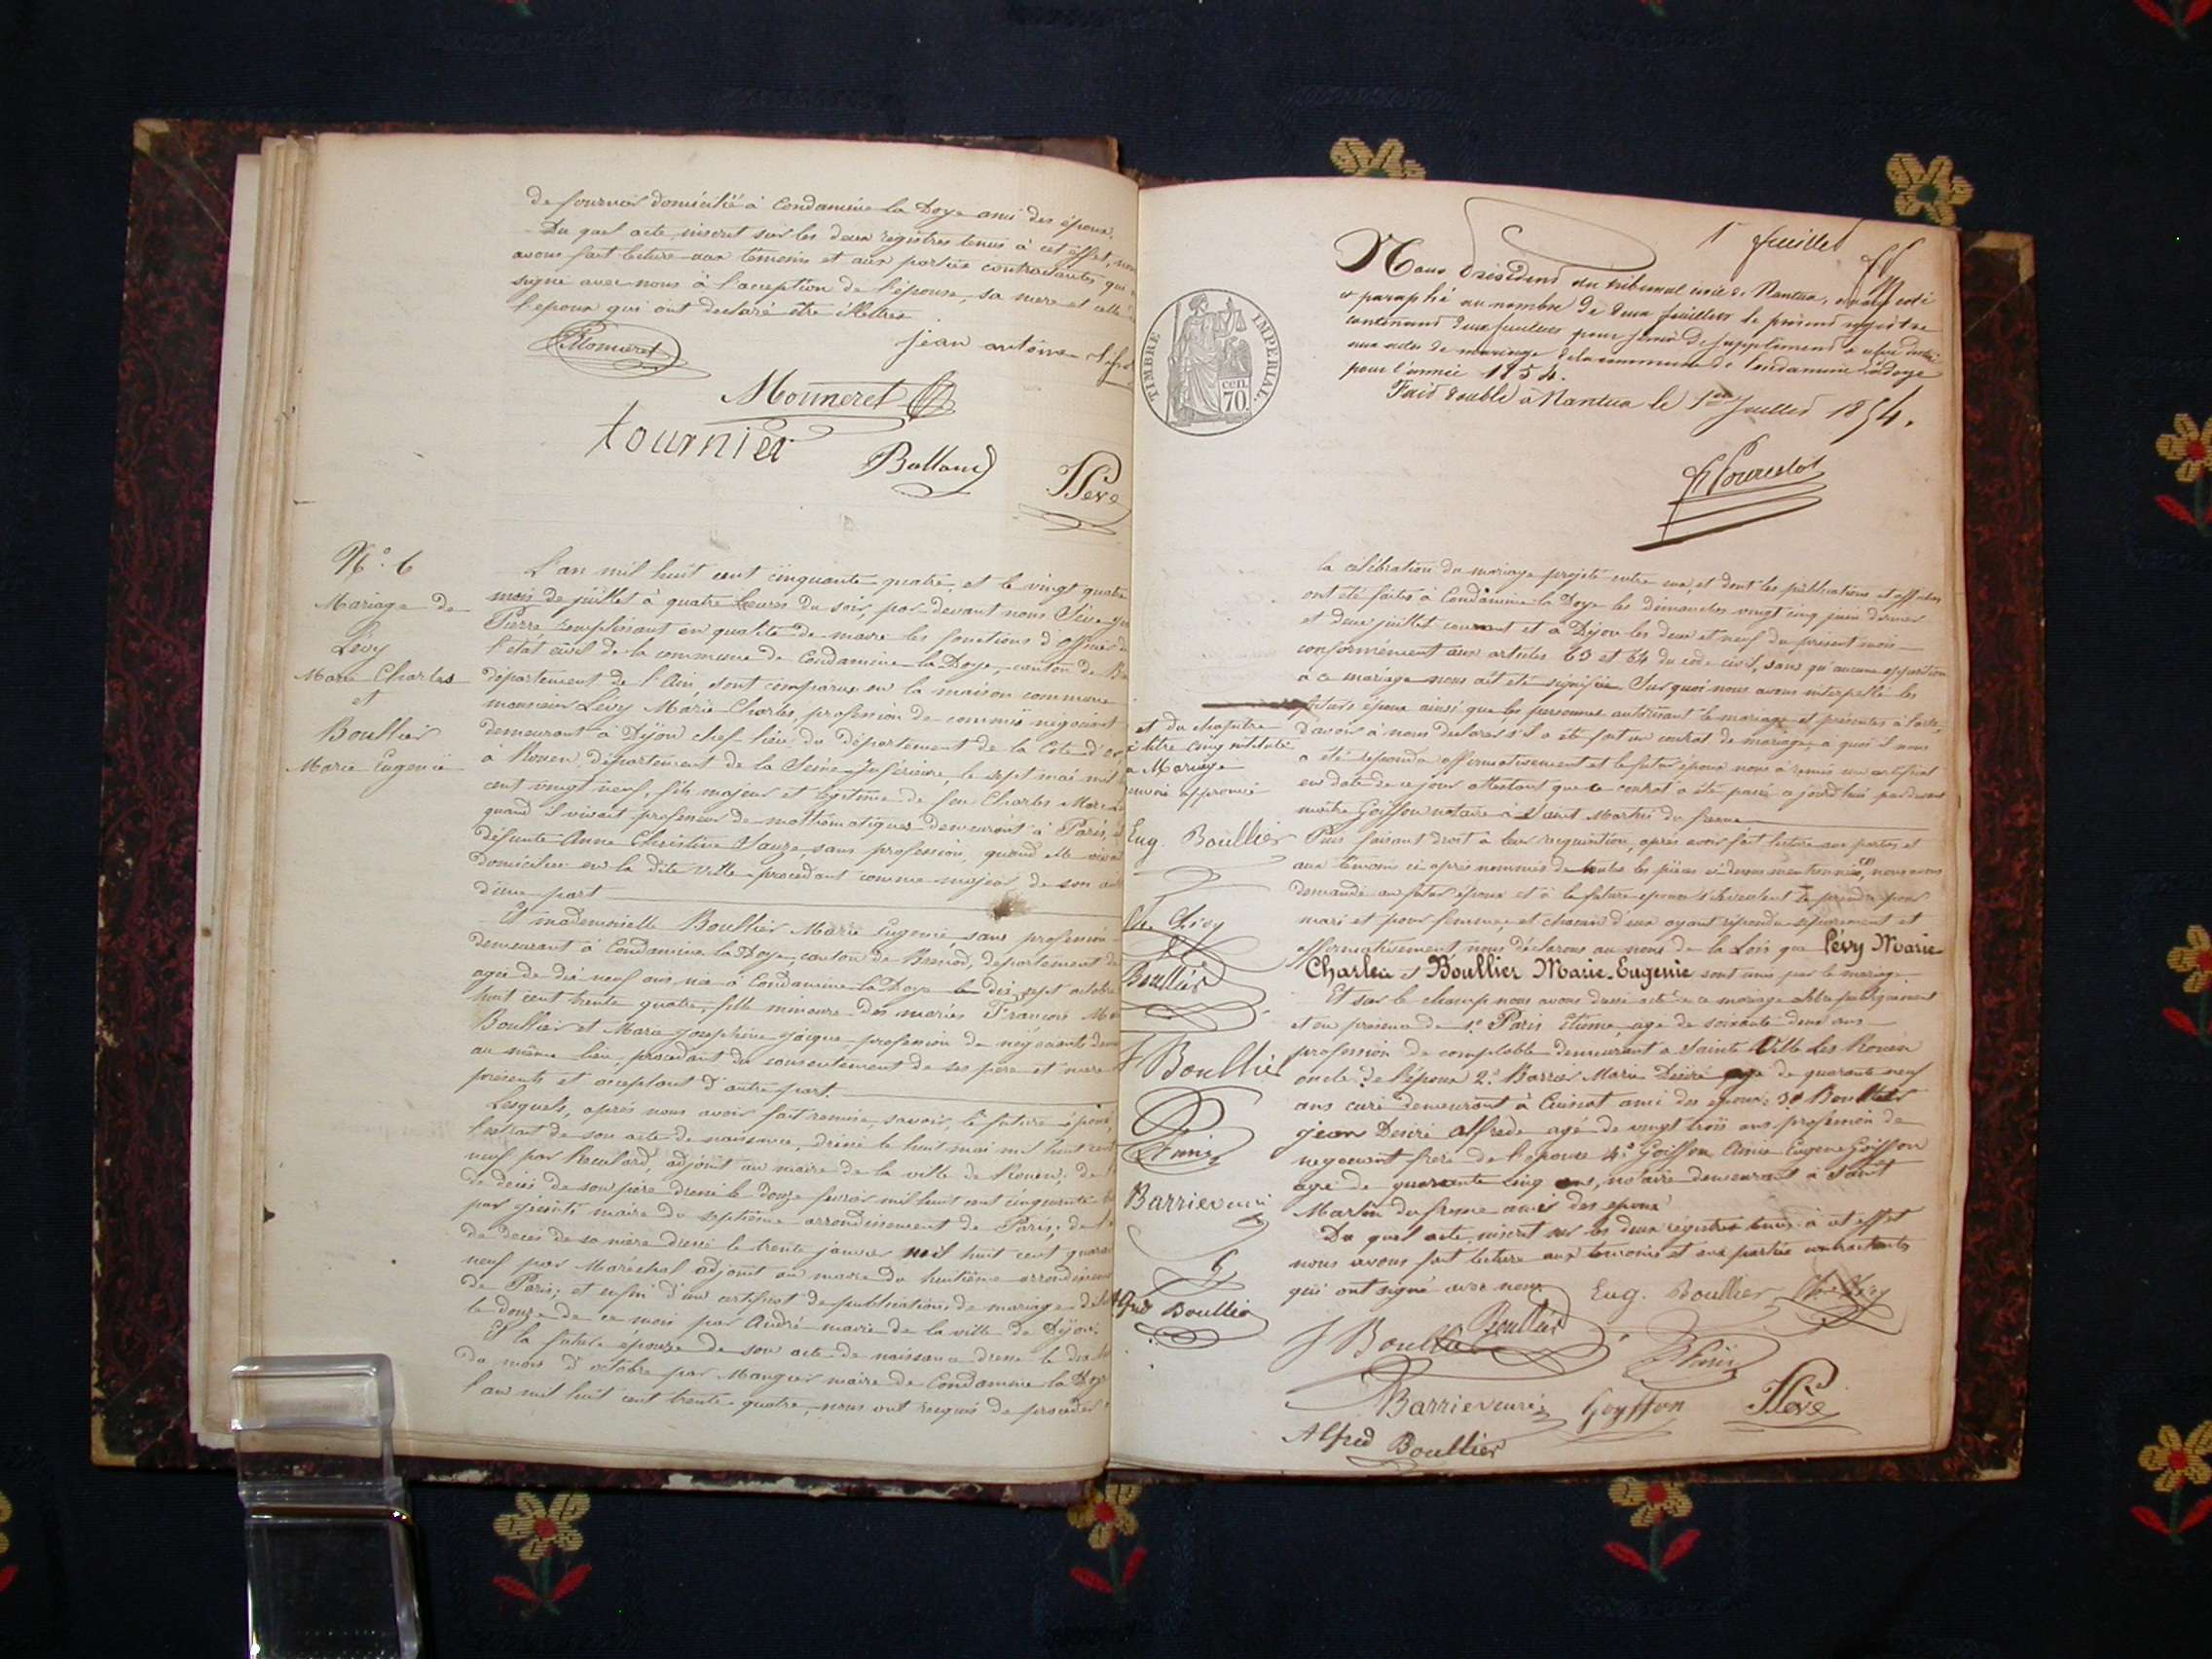 de fournier domicilié à Condamine la Doye ami des époux.
Du quel acte, inscrit sur les deux registres tenus à cet effet, nous
avons fait lecture aux témoins et aux parties contractantes qui
signé avec nous à l'acception de l'épouse, sa mère et celle de
l'époux qui ont declaré être illettrés
Monneret
jean antoine
Monneret
tournier
Balland
PSève
N°. 6
Mariage de
Lévy
Marie Charles
et
Boullier
Marie Eugenie
L'an mil huit cent cinquante quatre, et le vingt quatre
mois de juillet à quatre heures du soir, par devant nous Sève
Pierre remplissant en qualité de maire les fonctions d'officier de
l'état civil de la commune de Condamine-la-Doye, canton de
département de l'Ain, sont comparus en la maison commune
monsieur Lévy Marie Charles, profession de commis négociant
demeurant à Dijon chef lieu du département de la Cote d'or
à Rouen, département de la Seine-Inférieure, le sept mai mil
cent vingt neuf, fils majeur et légitime de feu Charles Marie
quand il vivait professeur de mathématiques demeurant à Paris,
défunte Anne Christine sans profession, quand elle vivait
domiciliée en la dite ville, procédant comme majeur de son
d'une part
Et mademoiselle Boullier Marie Eugenie, sans profession
demeurant à Condamine la Doye, canton de Brénod, département de
agée de dix neuf ans, née à Condamine la Doye le dix sept octobre
huit cent trente quatre, fille mineure des mariés François
Boullier et Marie Josephine profession de négociants
au même lieu, procédant du consentement de ses père et mère
présents et acceptant d'autre part.
Lesquels, après nous avoir fait remise, savoir, le future époux,
l'extrait de son acte de naissance, dressé le huit mai mil huit cent
neuf par adjoint au maire de la ville de Rouen; de
de décès de son père dressé le douze février mil huit cent cinquante
par maire du septième arrondissement de Paris; de
de décès de sa mère dressé le trente janvier mil huit cent quarante
neuf par Maréchal adjoint au maire du huitième arrondissement
de Paris; et enfin d'un certificat de publications de mariage
le douze de ce mois par André maire de la ville de Dijon.
Et la future épouse de son acte de naissance dressé le dix
du mois d'octobre par Mangier maire de Condamine la Doye
l'an mil huit cent trente-quatre, nous ont requis de procéder
1er feuillet
Nous Président du tribunal civil de Nantua, avons coté
et paraphé au nombre de deux feuillets le présent registre
contenant deux feuillets pour servir de supplément à celui destiné
aux actes de mariage de la commune de Condamine la Doye
pour l'année 1854.
Fait double à Nantua le 1er Juillet 1854.
TIMBRE IMPERIAL.
cen.
70.
la célébration du mariage projeté entre eux, et dont les publications et affiches
ont été faites à Condamine la Doye les dimanches vingt cinq juin dernier
et deux juillet courant et à Dijon les deux et neuf du présent mois
conformément aux articles 63 et 64 du code civil, sans qu'aucune opposition
à ce mariage nous ait été signifiée. Sur quoi nous avons interpellé les
futurs époux ainsi que les personnes autorisant le mariage et présentes à l'acte,
d'avoir à nous declarer s'il a été fait un contrat de mariage, à quoi il nous
a été répondu affirmativement et le futur époux nous a remis un certificat
en date de ce jour attestant que ce contrat a été passé aujourd'hui par devant
maître Goiffon notaire à Saint Martin du fresne
Puis faisant droit à leur requisition, après avoir fait lecture aux parties et
aux témoins ci après nommés de toutes les pièces ci dessus mentionnées, nous avons
demandé au futur époux et à la future épouse s'ils veulent se prendre pour
mari et pour femme, et chacun d'eux ayant répondu séparément et
affirmativement, nous déclarons au nom de la Loi que Lévy Marie
Charles et Boullier Marie-Eugenie sont unis par le mariage
Et sur le champ nous avons dressé acte de ce mariage célébré publiquement
et en présence de 1° Paris Etienne, agé de soixante deux ans
profession de comptable demeurant à Sainte Ville les Rouen
oncle de l'époux 2° Barrier Marie Désiré, agé de quarante neuf
ans curé demeurant à Cuiseat ami des époux 3° Boullier
jean Desiré alfrede agé de vingt trois ans profession de
negociant frère de l'épouse 4° Goiffon Aimé Eugene Goiffon
agé de quarante cinq ans, notaire demeurant à Saint
Martin du fresne amis des époux
Du quel acte, inscrit sur les deux régistres tenus à cet effet
nous avons fait lecture aux témoins et aux parties contractantes
qui ont signé avec nous
Eug. Boullier
Ch. Lévy
Boullier
J Boullier
Paris
Barrier curé
Goyffon
PSève
Alfred Boullier
et du chapitre
à titre cinq intitulé
du Mariage
renvoi approuvé
Eug. Boullier
Ch. Lévy
Boullier
J Boullier
Paris
Barrier curé
G
Alfred Boullier